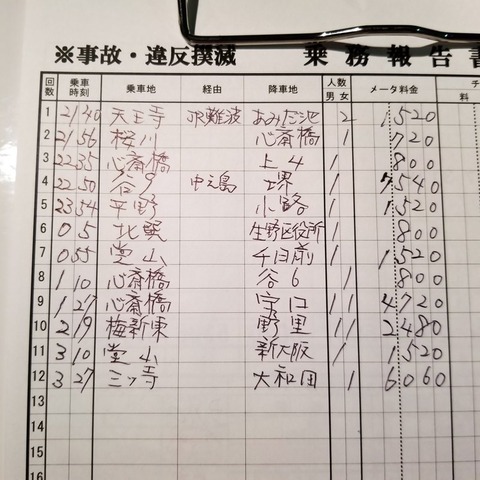 ※事故・違反撲滅 乗務報告書
回数 乗車時刻 乗車地 経由 降車地 人数 男 女 メータ料金 チ 料
1 21 40 天王寺 JR難波 あみだ池 2 1520
2 21 56 桜川 心斎橋 1 720
3 22 35 心斎橋 上4 1 800
4 22 50 谷9 中之島 堺 1 7540
5 23 54 平野 小路 1 1520
6 0 5 北巽 生野区役所 1 800
7 0 55 堂山 千日前 1 1520
8 1 10 心斎橋 谷6 1 800
9 1 27 心斎橋 守口 1 1 4720
10 2 19 梅新東 野里 1 1 2480
11 3 10 堂山 新大阪 1 1520
12 3 27 三ッ寺 大和田 1 6060
13
14
15
16